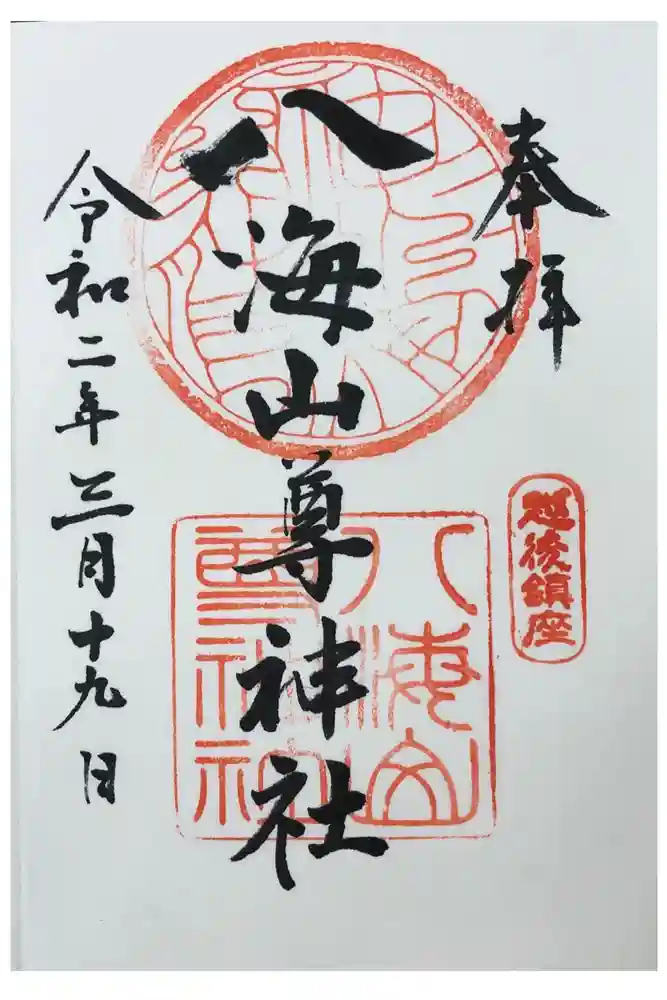 奉拝
越後鎮座
八海山尊神社
八海山尊神社
令和二年三月十九日